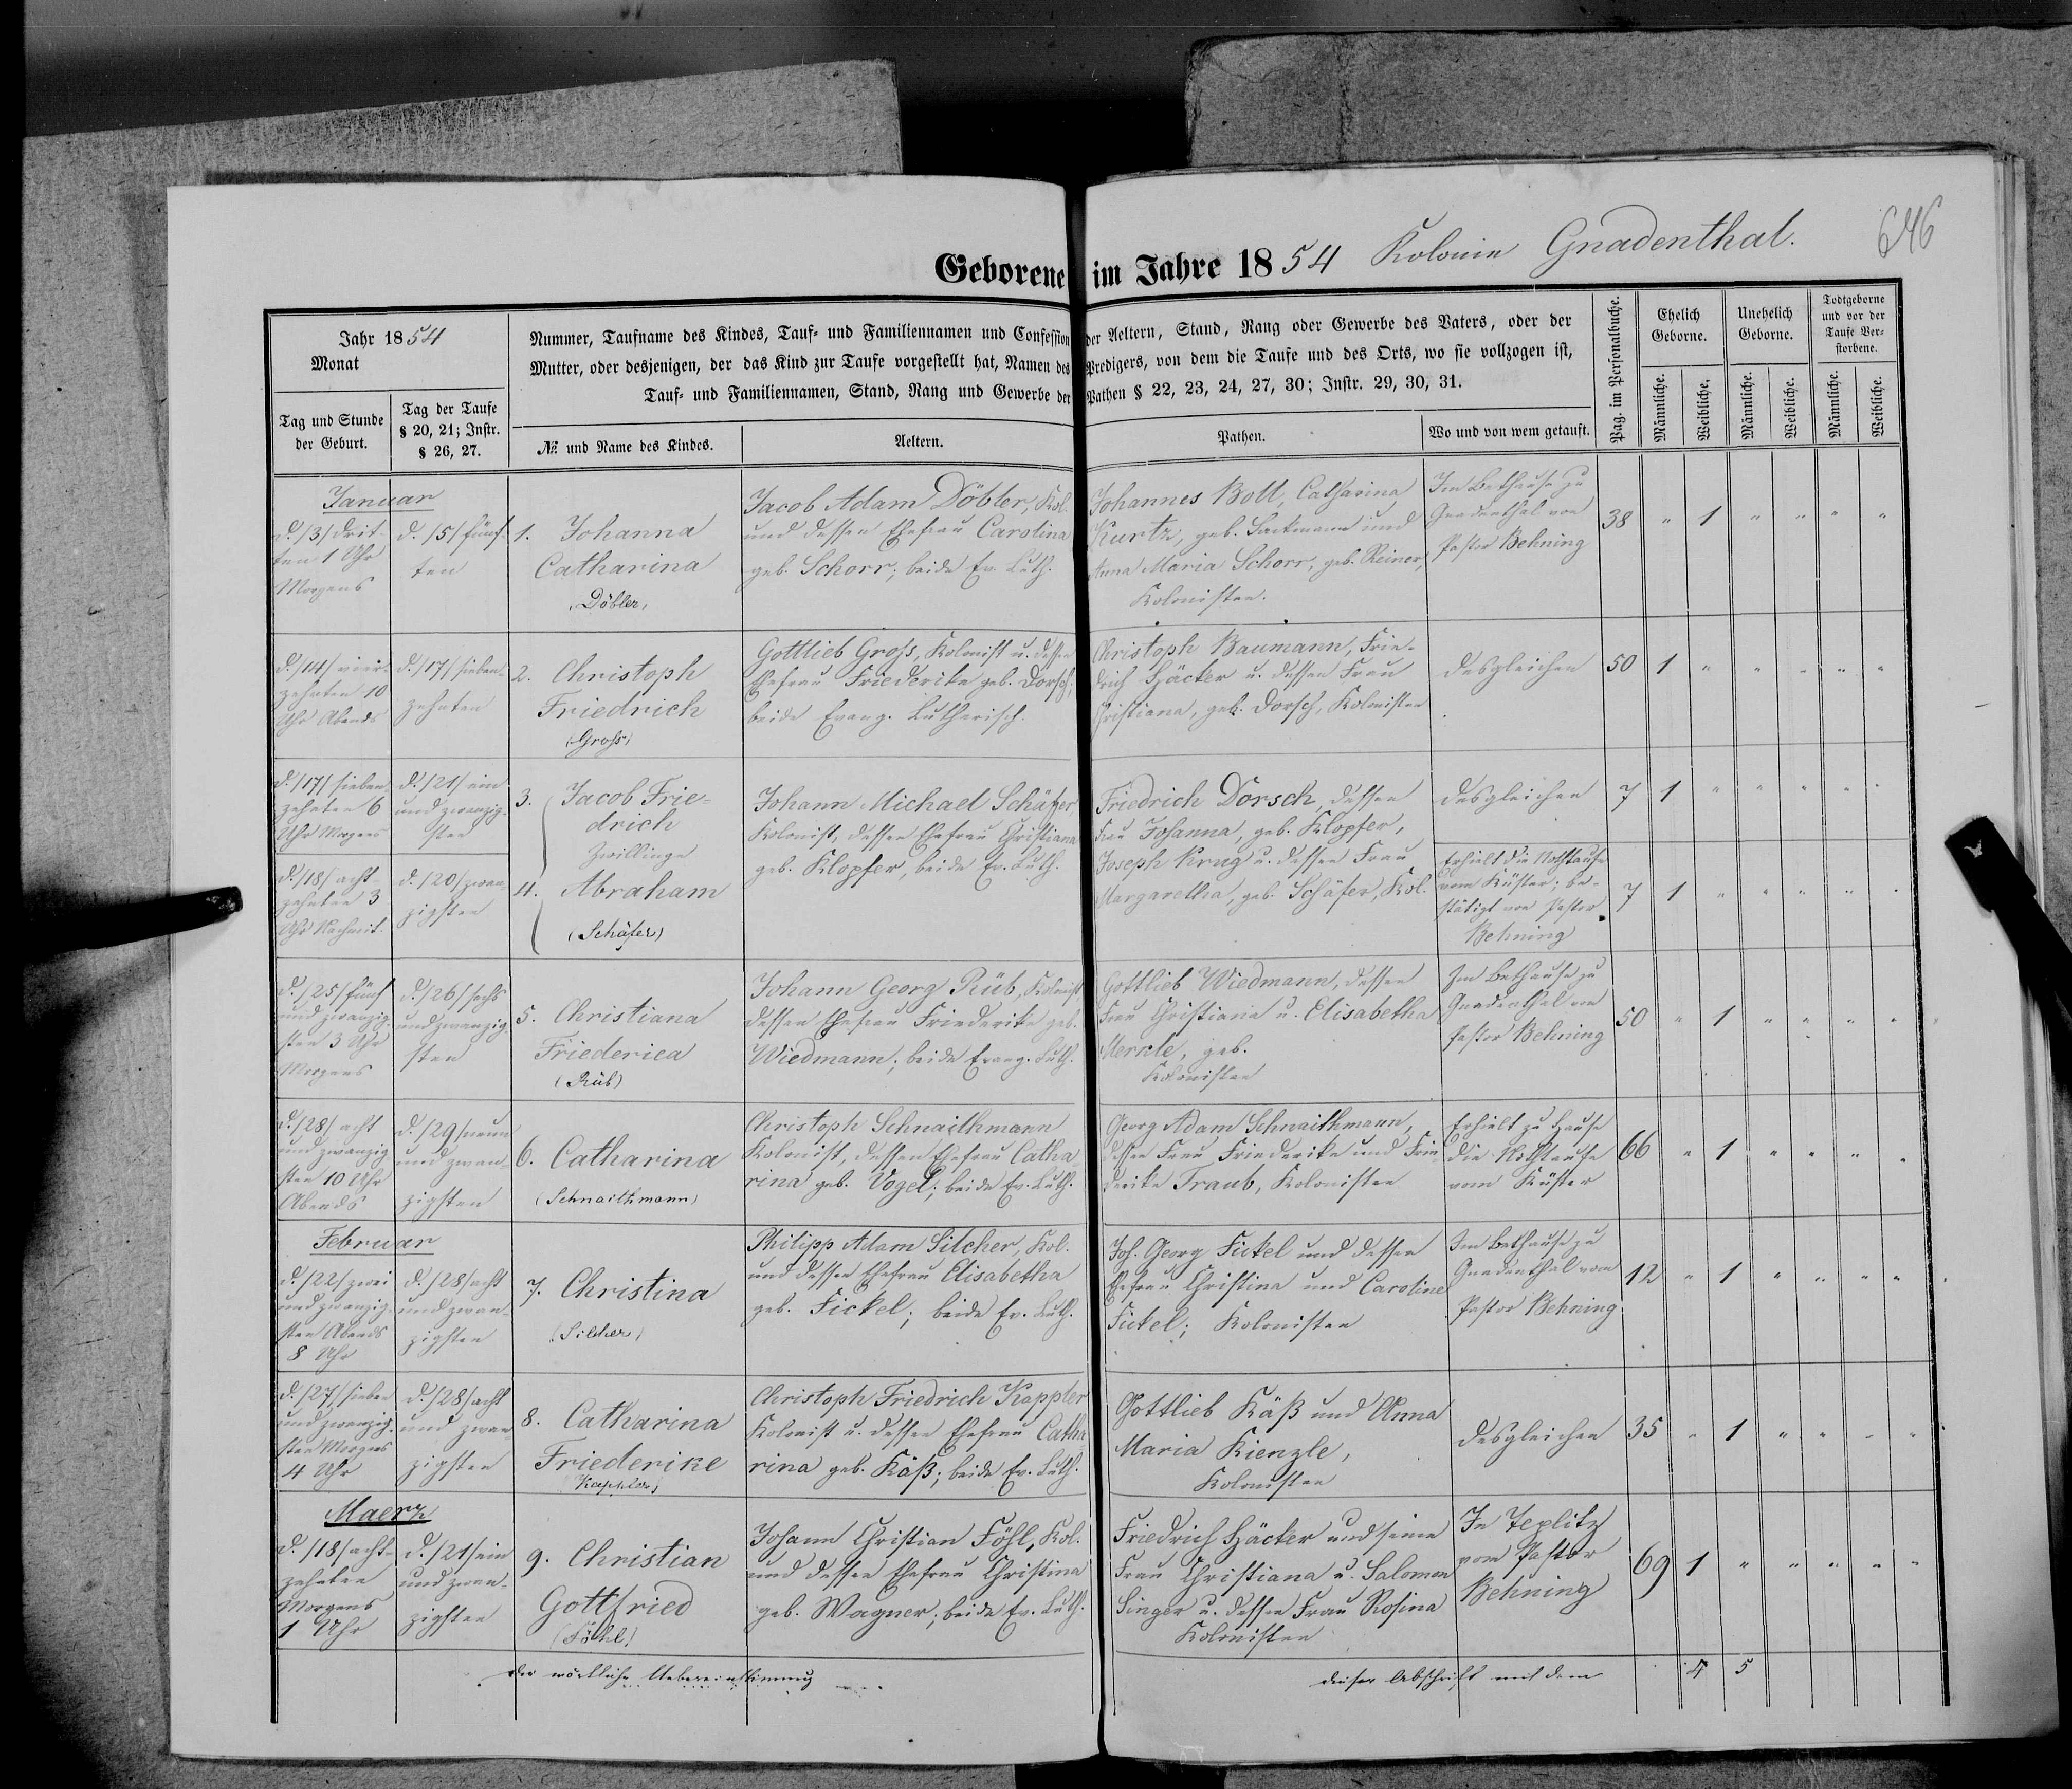 646
Geborene im Jahre 1854 Kolonie Gnadenthal.
Jahr 1854
Monat
Tag und Stunde
der Geburt.
Tag der Taufe
§ 20, 21; Instr.
§ 26, 27.
Nummer, Taufname des Kindes, Tauf- und Familiennamen und Confession der Aeltern, Stand, Rang oder Gewerbe des Vaters, oder der
Mutter, oder desjenigen, der das Kind zur Taufe vorgestellt hat, Namen des Predigers, von dem die Taufe und des Orts, wo sie vollzogen ist,
Tauf- und Familiennamen, Stand, Rang und Gewerbe der Pathen § 22, 23, 24, 27, 30; Instr. 29, 30, 31.
№ und Name des Kindes.
Aeltern.
Pathen.
Wo und von wem getauft.
Pag. im Personalbuche.
Ehelich
Geborne.
Unehelich
Geborne.
Todtgeborne
und vor der
Taufe Ver-
storbene.
Männliche.
Weibliche.
Männliche.
Weibliche.
Männliche.
Weibliche.
Januar
d. /3/ drit-
ten 1 Uhr
Morgens
d. /5/ fünf-
ten
1. Johanna
Catharina
(Döbler)
Jacob Adam Döbler, Kol.
und dessen Ehefrau Carolina
geb. Schorr; beide Ev. Luth.
Johannes Boll, Catharina
Kurtz, geb. Sackmann und
Anna Maria Schorr, geb. Reiner,
Kolonisten.
Im Bethause zu
Gnadenthal von
Pastor Behning
38 " 1 " " " "
d. /14/ vier-
zehnten 10
Uhr Abends
d. /17/ sieben-
zehnten
2. Christoph
Friedrich
(Gross)
Gottlieb Gross, Kolonist u. dessen
Ehefrau Friederike geb. Dorsch,
beide Evang. Lutherisch.
Christoph Baumann, Frie-
drich Häcker u. dessen Frau
Christiana, geb. Dorsch, Kolonisten
desgleichen
50 1 " " " " "
d. /17/ sieben-
zehnten 6
Uhr Morgens
d. /21/ ein
und zwanzig-
sten
3. Jacob Frie-
drich
Zwillinge
d. /18/ acht-
zehnten 3
Uhr Nachmit.
d. /20/ zwan-
zigsten
4. Abraham
(Schäfer)
Johann Michael Schäfer,
Kolonist, dessen Ehefrau Christiana
geb. Klopfer, beide Ev. Luth.
Friedrich Dorsch, dessen
Frau Johanna, geb. Klopfer,
Joseph Krug u. dessen Frau
Margaretha, geb. Schäfer, Kol.
desgleichen
7 1 " " " " "
Erhielt die Nothtaufe
vom Küster; be-
stätigt von Pastor
Behning
7 1 " " " " "
d. /25/ fünf
und zwanzig-
sten 3 Uhr
Morgens
d. /26/ sechs
und zwanzig-
sten
5. Christiana
Friederica
(Rüb)
Johann Georg Rüb, Kolonist
dessen Ehefrau Friederike geb.
Wiedmann; beide Evang. Luth.
Gottlieb Wiedmann, dessen
Frau Christiana u. Elisabetha
Merkle, geb.
Kolonisten
Im Bethause zu
Gnadenthal von
Pastor Behning
50 " 1 " " " "
d. /28/ acht
und zwanzig-
sten 10 Uhr
Abends
d. /29/ neun
und zwan-
zigsten
6. Catharina
(Schnaithmann)
Christoph Schnaithmann
Kolonist, dessen Ehefrau Catha-
rina geb. Vogel; beide Ev. Luth.
Georg Adam Schnaithmann,
dessen Frau Friederike und Frie-
derike Traub, Kolonisten
Erhielt zu Hause
die Nothtaufe
vom Küster
66 " 1 " " " "
Februar
d. /22/ zwei
und zwanzig-
sten Abends
8 Uhr
d. /28/ acht
und zwan-
zigsten
7. Christina
(Silcher)
Philipp Adam Silcher, Kol.
und dessen Ehefrau Elisabetha
geb. Fickel; beide Ev. Luth.
Joh. Georg Fickel und dessen
Ehefrau Christina und Caroline
Fickel; Kolonisten
Im Bethause zu
Gnadenthal vom
Pastor Behning.
12 " 1 " " " "
d. /27/ sieben
und zwanzig-
sten Morgens
4 Uhr
d. /28/ acht
und zwan-
zigsten
8. Catharina
Friederike
(Kappler)
Christoph Friedrich Kappler
Kolonist u. dessen Ehefrau Catha-
rina geb. Käß; beide Ev. Luth.
Gottlieb Käß und Anna
Maria Kienzle,
Kolonisten
desgleichen
35 " 1 " " " "
Maerz
d. /18/ acht-
zehnten
Morgens
1 Uhr
d. /21/ ein
und zwan-
zigsten
9. Christian
Gottfried
(Föhl)
Johann Christian Föhl, Kol.
und dessen Ehefrau Christina
geb. Wagner; beide Ev. Luth.
Friedrich Häcker und seine
Frau Christiana u. Salomon
Singer u. dessen Frau Rosina
Kolonisten
In Teplitz
vom Pastor
Behning
69 1 " " " " "
Die wörtliche Uebereinstimmung dieser Abschrift mit dem
4 5